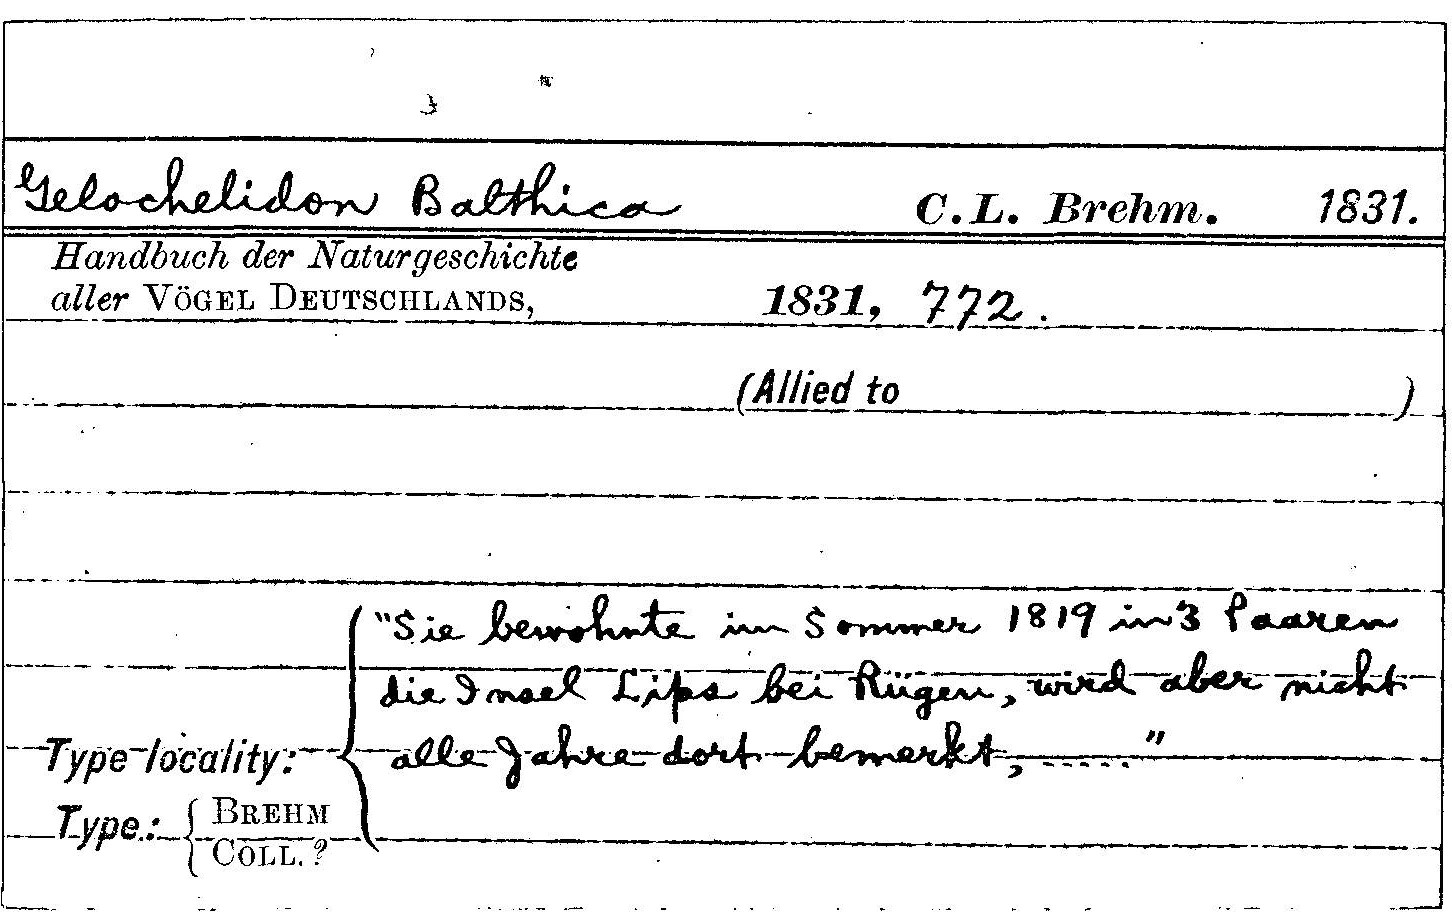 Gelochelidon Balthica C.L. Brehm. 1831.
Handbuch der Naturgeschichte
aller VÖGEL DEUTSCHLANDS, 1831, 772.
(Allied to )
"Sie bewohnte im Sommer 1819 in 3 Paaren
die Insel Lips bei Rügen, wird aber nicht
Type locality: alle Jahre dort bemerkt, ....."
Type: BREHM
COLL. ?